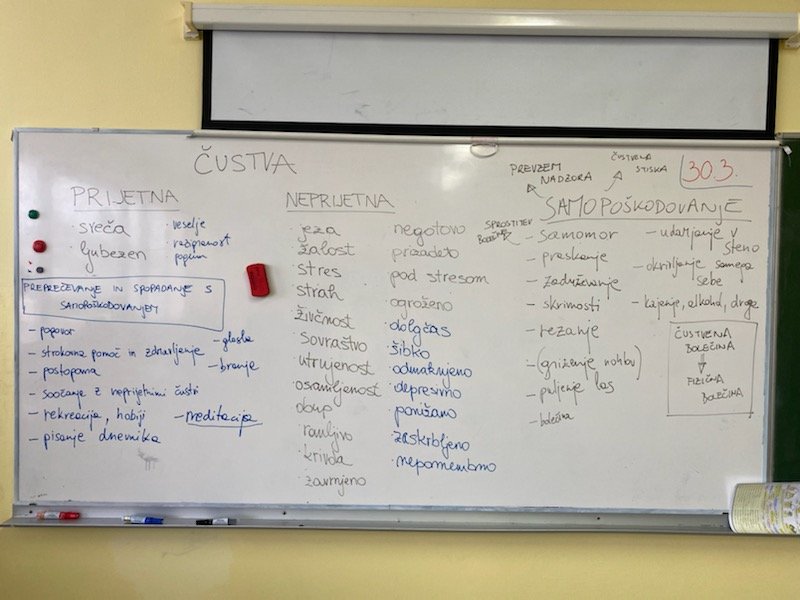 ČUSTVA
PRIJETNA
· sreča
· ljubezen
· veselje
· razigranost
pogum
PREPREČEVANJE IN SPOPADANJE S
SAMOPOŠKODOVANJEM
- pogovor
- strokovna pomoč in zdravljenje
- postopoma
- soočanje z neprijetnimi čustvi
- rekreacija, hobiji
- pisanje dnevnika
- glasba
- branje
- meditacija
NEPRIJETNA
· jeza
· žalost
· stres
· strah
· živčnost
· sovraštvo
· utrujenost
· osamljenost
· obup
· ranljivo
· krivda
· zavrnjeno
· negotovo
· prizadeto
· pod stresom
· ogroženo
· dolgčas
· šibko
· odmaknjeno
· depresivno
· ponižano
· zaskrbljeno
· nepomembno
PREVZEM
NADZORA
ČUSTVENA
STISKA
30.3.
SPROSTITEV
BOLEČINE
SAMOPOŠKODOVANJE
- samomor
- praskanje
- zadrževanje
- skrivnosti
- rezanje
- (grizenje nohtov)
- puljenje las
- bolečina
- udarjanje v
steno
- okrivljanje samega
sebe
- kajenje, alkohol, droga
ČUSTVENA
BOLEČINA
⇓
FIZIČNA
BOLEČINA